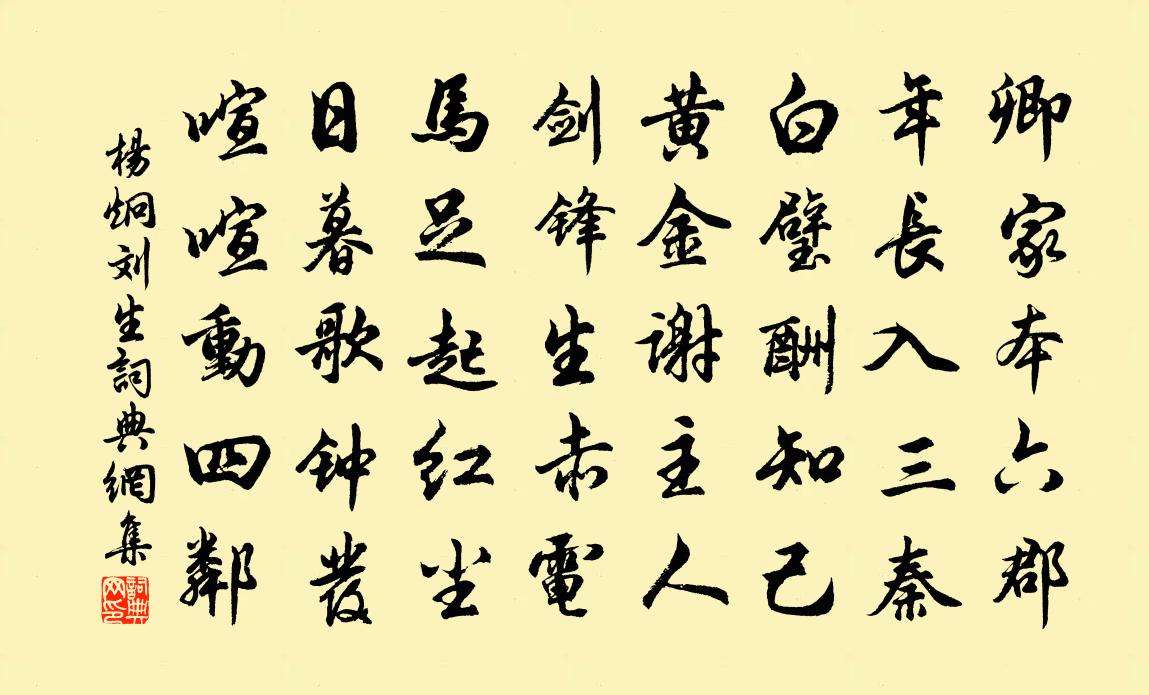 卿家本六郡
年長入三秦
白璧酬知己
黄金谢主人
劍锋生赤電
馬足起红尘
日暮歌钟發
喧喧動四鄰
楊炯刘生詞典網集
詞典网印